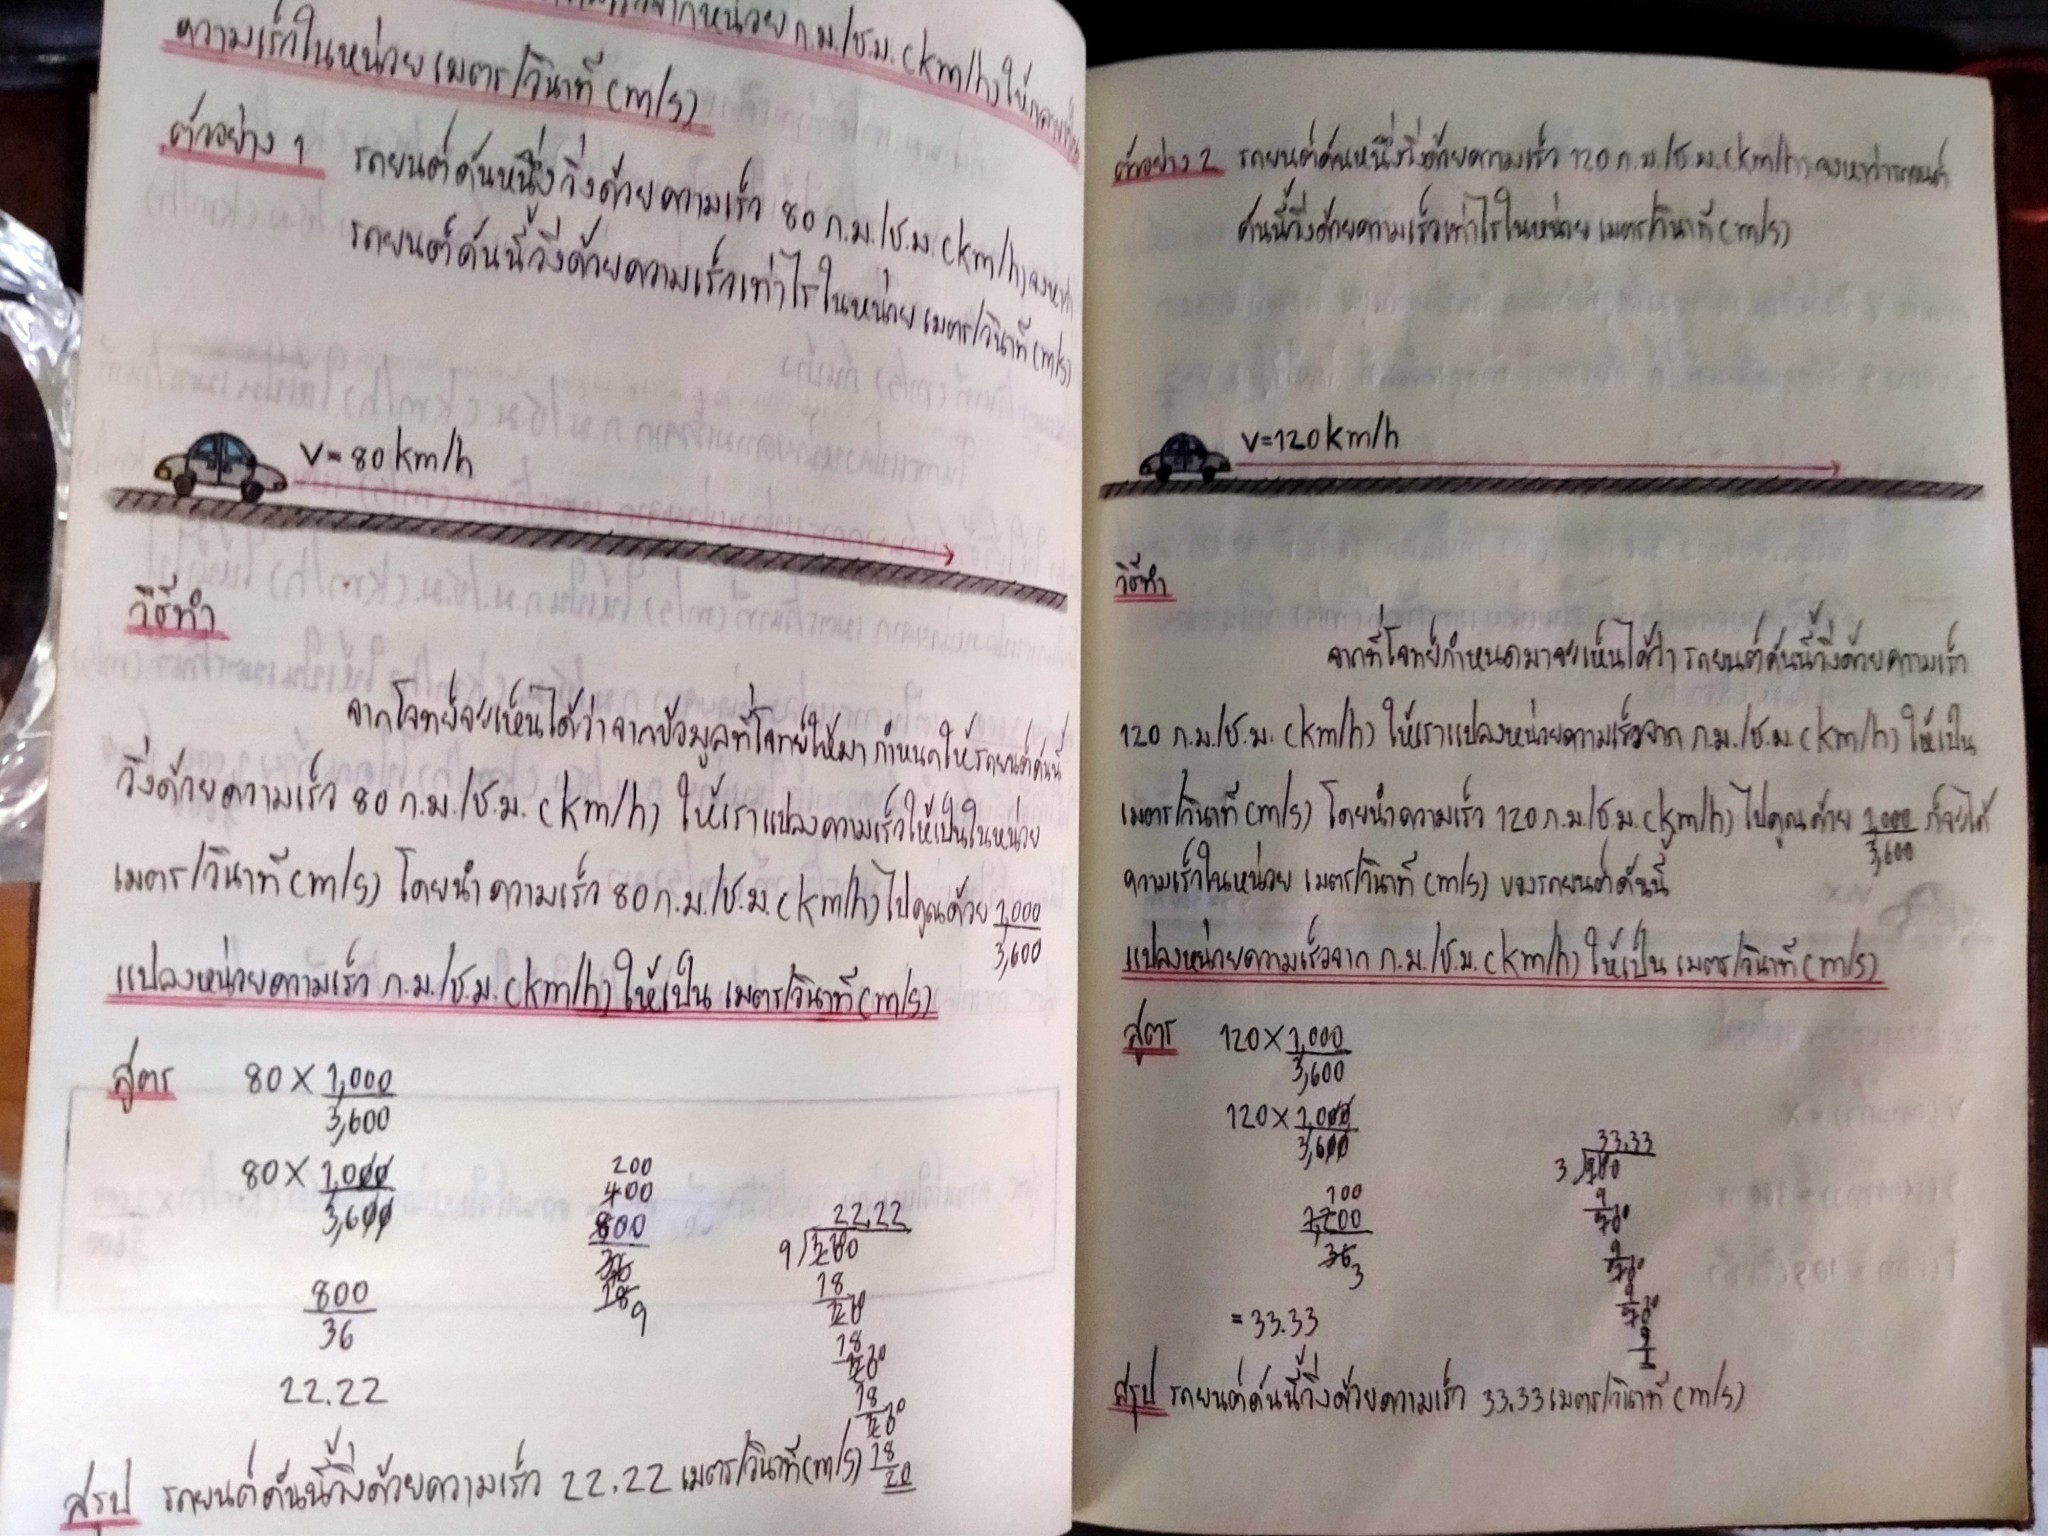 ความเร็วในหน่วย เมตร/วินาที (m/s)
ตัวอย่าง 1 รถยนต์คันหนึ่งวิ่งด้วยความเร็ว 80 ก.ม./ช.ม. (km/h) จงหาว่า
รถยนต์คันนี้วิ่งด้วยความเร็วเท่าไรในหน่วย เมตร/วินาที (m/s)
V = 80 km/h
วิธีทำ
จากโจทย์จะเห็นได้ว่าจากข้อมูลที่โจทย์ให้มา กำหนดให้รถยนต์คันนี้
วิ่งด้วยความเร็ว 80 ก.ม./ช.ม. (km/h) ให้เราแปลงความเร็วให้เป็นในหน่วย
เมตร/วินาที (m/s) โดยนำ ความเร็ว 80 ก.ม./ช.ม. (km/h) ไปคูณด้วย 1,000/3,600
แปลงหน่วยความเร็ว ก.ม./ช.ม. (km/h) ให้เป็น เมตร/วินาที (m/s)
สูตร 80 × 1,000/3,600
80 × 1,000/3,600
800/36
22.22
200
400
800
36
18 9
22.22
9 200
18
20
18
20
18
20
18
20
สรุป รถยนต์คันนี้วิ่งด้วยความเร็ว 22.22 เมตร/วินาที (m/s)
ตัวอย่าง 2 รถยนต์คันหนึ่งวิ่งด้วยความเร็ว 120 ก.ม./ช.ม. (km/h) จงหาว่ารถยนต์
คันนี้วิ่งด้วยความเร็วเท่าไรในหน่วย เมตร/วินาที (m/s)
V = 120 km/h
วิธีทำ
จากที่โจทย์กำหนดมาจะเห็นได้ว่า รถยนต์คันนี้วิ่งด้วยความเร็ว
120 ก.ม./ช.ม. (km/h) ให้เราแปลงหน่วยความเร็วจาก ก.ม./ช.ม. (km/h) ให้เป็น
เมตร/วินาที (m/s) โดยนำความเร็ว 120 ก.ม./ช.ม. (km/h) ไปคูณด้วย 1,000/3,600 ก็จะได้
ความเร็วในหน่วย เมตร/วินาที (m/s) ของรถยนต์คันนี้
แปลงหน่วยความเร็วจาก ก.ม./ช.ม. (km/h) ให้เป็น เมตร/วินาที (m/s)
สูตร 120 × 1,000/3,600
120 × 1,000/3,600
100
1,200
36 3
= 33.33
33.33
3 100
9
10
9
10
9
10
9
1
สรุป รถยนต์คันนี้วิ่งด้วยความเร็ว 33.33 เมตร/วินาที (m/s)